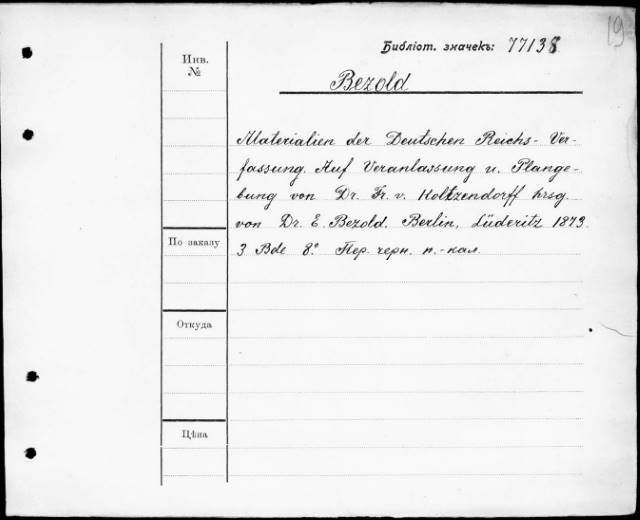 19
Библіот. значекъ: 77138
Инв.
№
Bezold
Materialien der Deutschen Reichs-Ver-
fassung. Auf Veranlassung u. Plange-
bung von Dr. Fr. v. Holtzendorff hrsg.
von Dr. E. Bezold. Berlin, Lüderitz 1873.
По заказу
3 Bde 8.° Пер. черн. п.-кал.
Откуда
Цѣна